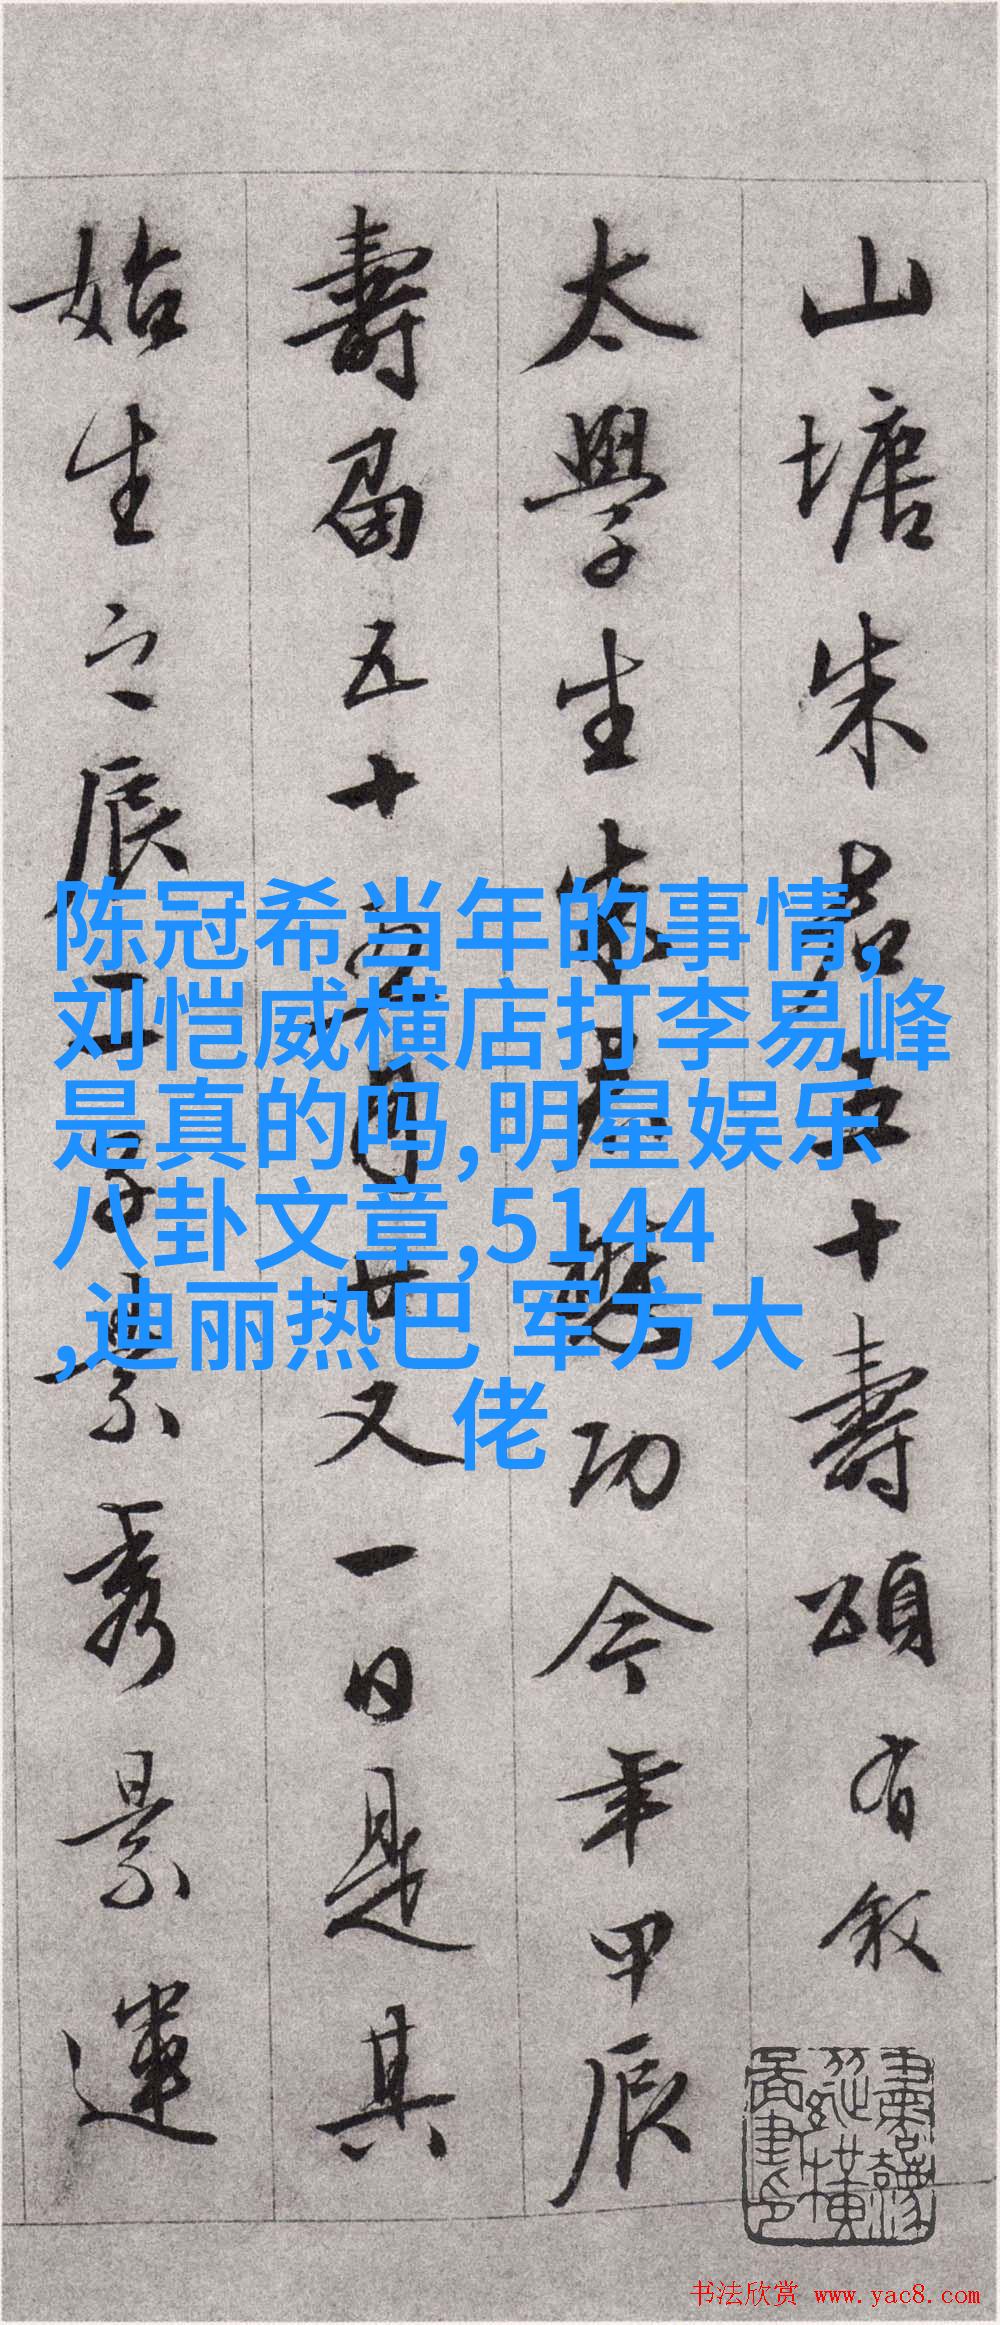 山塘朱君五十壽頌有敘
太學生朱君懋功今年甲辰
壽届五十六月廿又一日是其
始生之辰工子景秀景運
陈冠希当年的事情,
刘恺威横店打李易峰
是真的吗,明星娱乐
八卦文章,5144
,迪丽热巴 军方大
佬
书法欣赏 www.yac8.com